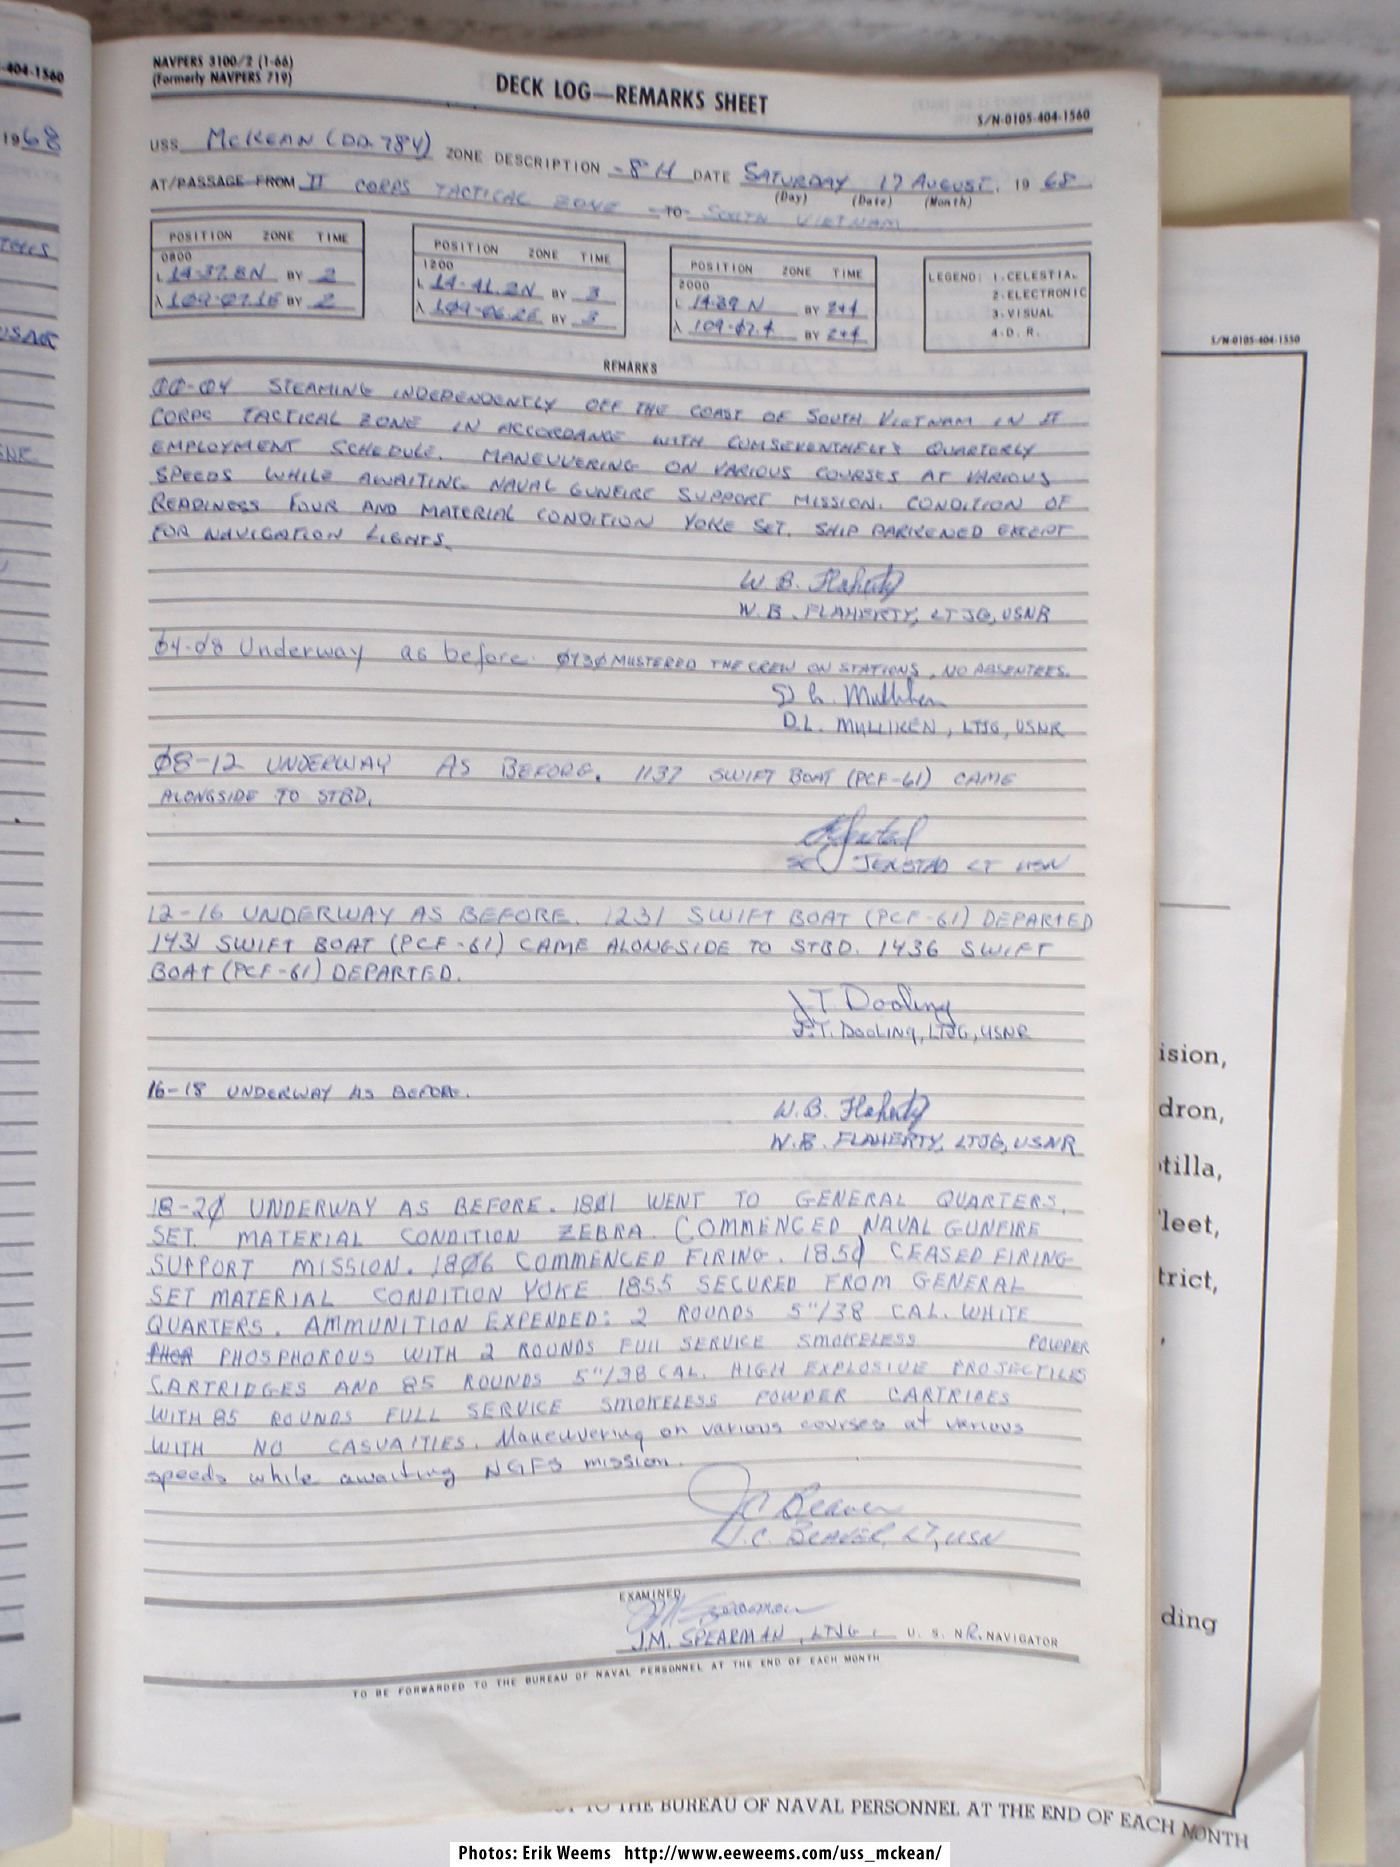 NAVPERS 3100/2 (1-66)
(Formerly NAVPERS 719)
DECK LOG—REMARKS SHEET
S/N-0105-404-1560
USS McKEAN (DD-784) ZONE DESCRIPTION -8 H DATE SATURDAY 17 AUGUST, 19 68
(Day) (Date) (Month)
AT/PASSAGE FROM II CORPS TACTICAL ZONE -TO- SOUTH VIETNAM
POSITION ZONE TIME
0800
L 14-37.8N BY 2
λ 109-07.1E BY 2
POSITION ZONE TIME
1200
L 14-41.2N BY 3
λ 109-06.2E BY 3
POSITION ZONE TIME
2000
L 14-39 N BY 2+4
λ 109-07.4 BY 2+4
LEGEND: 1-CELESTIAL
2-ELECTRONIC
3-VISUAL
4-D. R.
REMARKS
00-04 STEAMING INDEPENDENTLY OFF THE COAST OF SOUTH VIETNAM IN II
CORPS TACTICAL ZONE IN ACCORDANCE WITH COMSEVENTHFLT'S QUARTERLY
EMPLOYMENT SCHEDULE. MANEUVERING ON VARIOUS COURSES AT VARIOUS
SPEEDS WHILE AWAITING NAVAL GUNFIRE SUPPORT MISSION. CONDITION OF
READINESS FOUR AND MATERIAL CONDITION YOKE SET. SHIP DARKENED EXCEPT
FOR NAVIGATION LIGHTS.
W. B. Flaherty
W. B. FLAHERTY, LTJG, USNR
04-08 Underway as before. 0730 MUSTERED THE CREW ON STATIONS, NO ABSENTEES.
D L Mulliken
D.L. MULLIKEN, LTJG, USNR
08-12 UNDERWAY AS BEFORE. 1137 SWIFT BOAT (PCF-61) CAME
ALONGSIDE TO STBD.
JENSTAD LT USN
12-16 UNDERWAY AS BEFORE. 1231 SWIFT BOAT (PCF-61) DEPARTED
1431 SWIFT BOAT (PCF-61) CAME ALONGSIDE TO STBD. 1436 SWIFT
BOAT (PCF-61) DEPARTED.
J.T. Dooling
J.T. DOOLING, LTJG, USNR
16-18 UNDERWAY AS BEFORE.
W. B. Flaherty
W. B. FLAHERTY, LTJG, USNR
18-20 UNDERWAY AS BEFORE. 1801 WENT TO GENERAL QUARTERS,
SET MATERIAL CONDITION ZEBRA. COMMENCED NAVAL GUNFIRE
SUPPORT MISSION. 1806 COMMENCED FIRING. 1850 CEASED FIRING
SET MATERIAL CONDITION YOKE 1855 SECURED FROM GENERAL
QUARTERS. AMMUNITION EXPENDED: 2 ROUNDS 5"/38 CAL. WHITE
PHOR PHOSPHOROUS WITH 2 ROUNDS FULL SERVICE SMOKELESS POWDER
CARTRIDGES AND 85 ROUNDS 5"/38 CAL. HIGH EXPLOSIVE PROJECTILES
WITH 85 ROUNDS FULL SERVICE SMOKELESS POWDER CARTRIDES
WITH NO CASUALTIES. Maneuvering on various courses at various
speeds while awaiting NGFS mission.
J C Beaver
J.C. BEAVER, LT, USN
EXAMINED
JM Spearman
J.M. SPEARMAN, LTJG, U. S. NR. NAVIGATOR
TO BE FORWARDED TO THE BUREAU OF NAVAL PERSONNEL AT THE END OF EACH MONTH
-404-1560
1968
USNR
S/N-0105-404-1550
ision,
dron,
tilla,
leet,
trict,
ding
TO THE BUREAU OF NAVAL PERSONNEL AT THE END OF EACH MONTH
Photos: Erik Weems http://www.eeweems.com/uss_mckean/